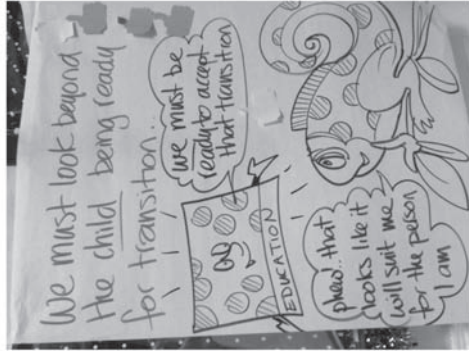 We must look beyond
the child being ready
for transition..
we must be
ready to accept
that transition
EDUCATION
phew..that
looks like it
will suit me
for the person
I am